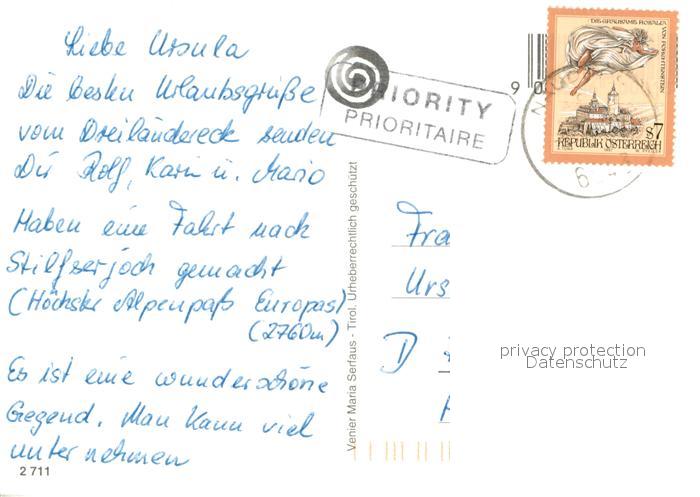 Liebe Ursula
Die besten Urlaubsgrüße
vom Dreiländereck senden
Dir Rolf, Karin u. Mario
Haben eine Fahrt nach
Stilfserjoch gemacht
(Höchster Alpenpaß Europas)
(2760m)
Es ist eine wunderschöne
Gegend. Man kann viel
unternehmen
2 711
Venier Maria Serfaus - Tirol. Urheberrechtlich geschützt
PRIORITY
PRIORITAIRE
9 0
DIE GRAUSAME ROSALIA
VON FORCHTENSTEIN
S7
REPUBLIK ÖSTERREICH
Fra
Urs
D
privacy protection
Datenschutz